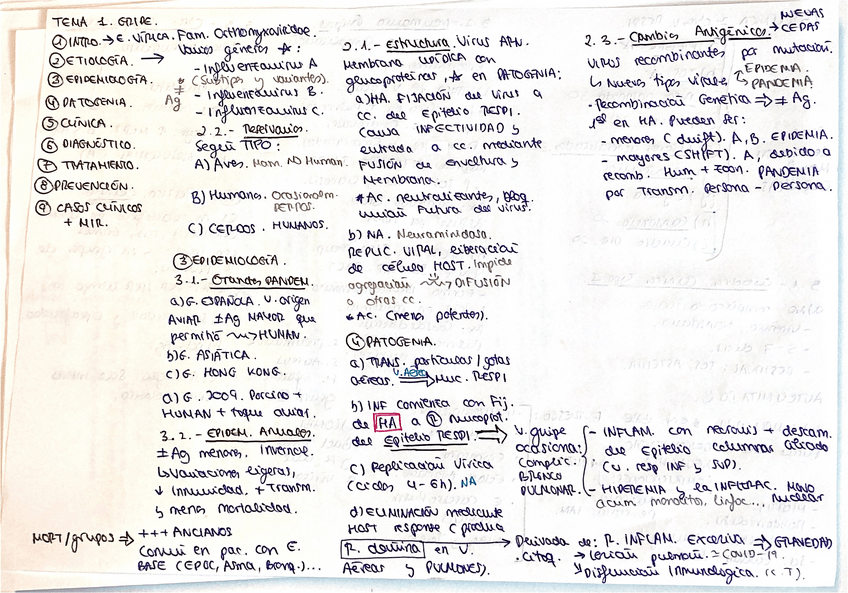 TEMA 1. GRIPE.
① INTRO. → E. VÍRICA. Fam. Orthomyxoviridae.
② ETIOLOGÍA. →
③ EPIDEMIOLOGÍA.
④ PATOGENIA.
⑤ CLÍNICA.
⑥ DIAGNÓSTICO.
⑦ TRATAMIENTO.
⑧ PREVENCIÓN.
⑨ CASOS CLÍNICOS
+ MIR.
Varios géneros
- Influenzavirus A
(subtipos y variantes).
≠ Ag
- Influenzavirus B.
- Influenzavirus C.
2.2.- Reservorios.
Según TIPO:
A) Aves. Mam. NO Human.
B) Humanos. Ocasionalm.
PERROS.
C) CERDOS. HUMANOS.
③ EPIDEMIOLOGÍA.
3.1.- Grandes PANDEM.
a) G. ESPAÑOLA. V. origen
AVIAR ±Ag MAYOR que
permitió ⟿ HUMAN.
b) G. ASIÁTICA.
c) G. HONG KONG.
a) G. 2009. Porcino +
HUMAN + toque aviar.
3.2.- EPIDEM. ANUALES.
±Ag menores. Invernal.
↳ Variaciones ligeras,
↓ Inmunidad, + Transm.
y menos mortalidad.
MORT/grupos ⇒ +++ ANCIANOS
Común en pac. con E.
BASE (EPOC, Asma, Bronq.)...
2.1.- Estructura. Virus ARN.
Membrana LIPÍDICA con
glucoproteínas, en PATOGENIA:
a) HA. FIJACIÓN del virus a
cc. del Epitelio RESPI.
Causa INFECTIVIDAD y
entrada a cc. mediante
FUSIÓN de envoltura y
Membrana.
* Ac. neutralizantes, bloq.
unión futura del virus.
b) NA. Neuraminidasa.
REPLIC. VIRAL, liberación
de célula HOST. Impide
agregación ⟿ DIFUSIÓN
a otras cc.
* Ac. (menos potentes).
④ PATOGENIA.
a) TRANS. partículas/gotas
aéreas. V. Aérea ⇒ MUC. RESPI
b) INF comienza con Fij.
de HA a Ⓡ mucoprot.
del Epitelio RESPI. ⇒
c) Replicación Vírica
(ciclos 4-6h). NA
d) ELIMINACIÓN mediante
HOST response → produce
R. dañina en V.
Aéreas y PULMONES).
2.3.- Cambios Antigénicos. → NUEVAS CEPAS
Virus recombinantes por mutación.
↳ Nuevos tipos virales → EPIDEMIA
PANDEMIA
- Recombinación Genética ⇒ ≠ Ag.
1º en HA. Pueden ser:
- menores (drift). A, B. EPIDEMIA.
- mayores (SHIFT). A, debido a
recomb. Hum + Zoon. PANDEMIA
por Transm. Persona - Persona.
V. gripe
ocasiona:
Complic.
BRONCO
PULMONAR.
- INFLAM. con necrosis + descam.
del Epitelio columnar ciliado
(v. resp INF y SUP).
- HIPEREMIA y ea INFILTRAC. MONO
nuclear
acum monocitos, linfoc...
Derivada de: R. INFLAM. Excesiva ⇒ GRAVEDAD
. Citoq. → Lesión pulmón. ≃ COVID-19.
↘ Disfunción Inmunológica. (c. T).